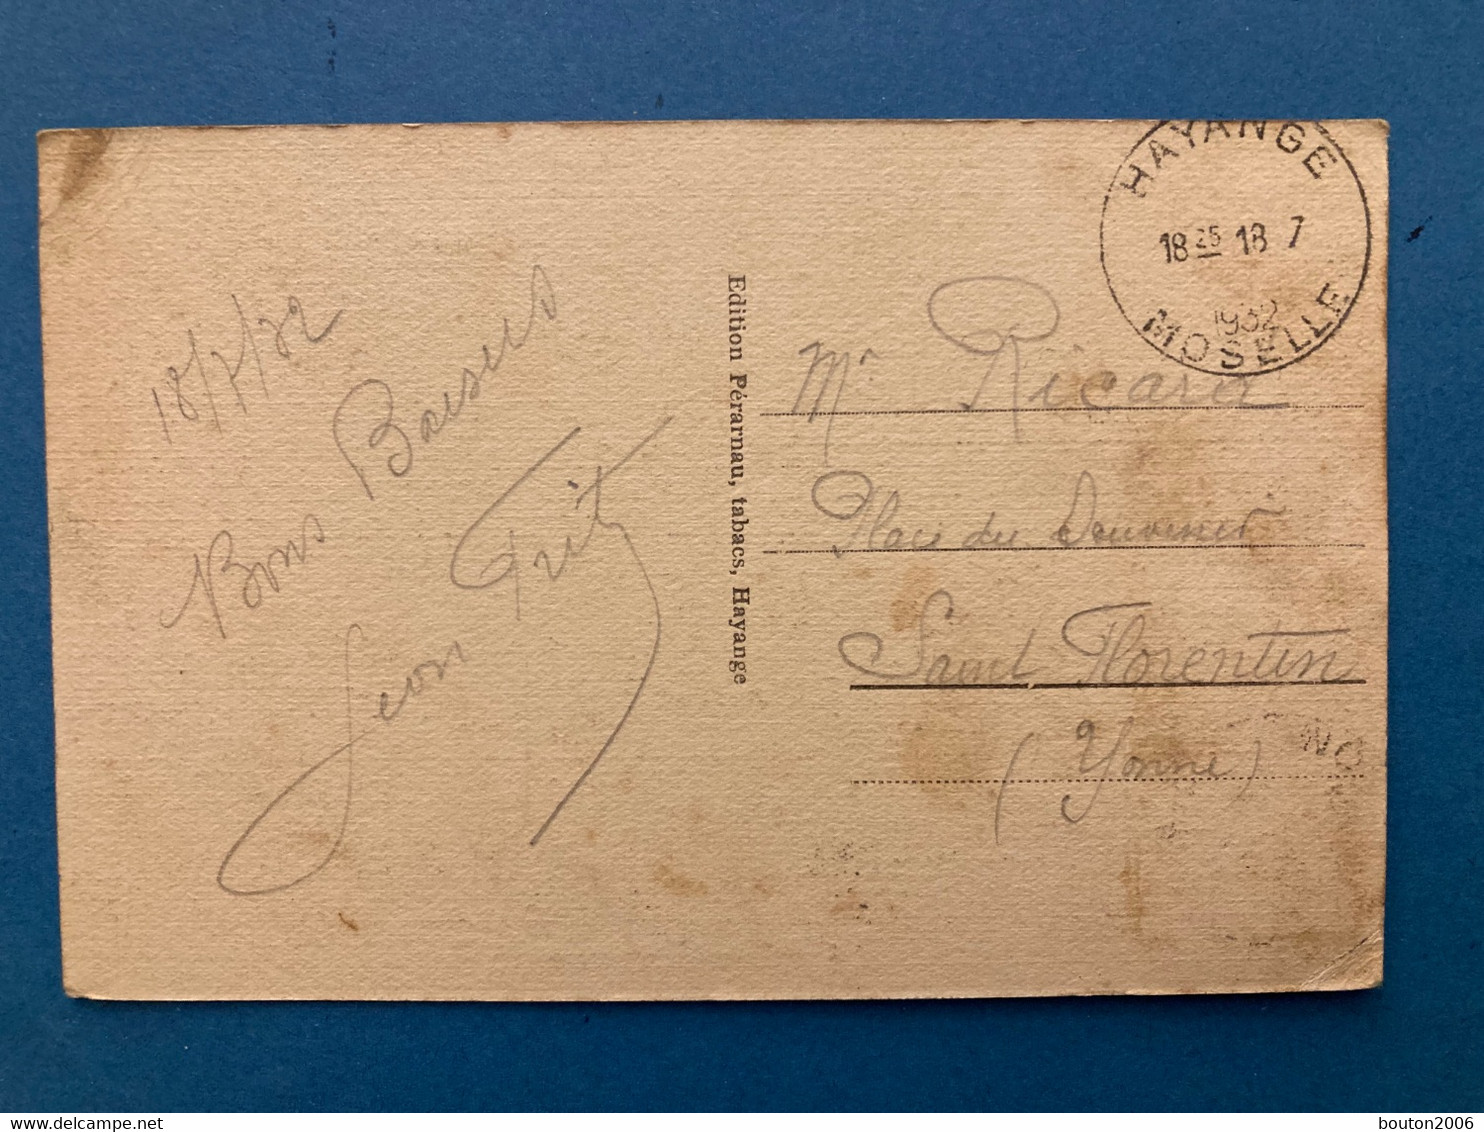 18/7/32
Bons Baisers
Leon Fritz
Edition Pérarnau, tabacs, Hayange
HAYANGE
18 25 18 7
1932
MOSELLE
Mr Ricard
Place du
Saint Florentin
(Yonne)
bouton2006